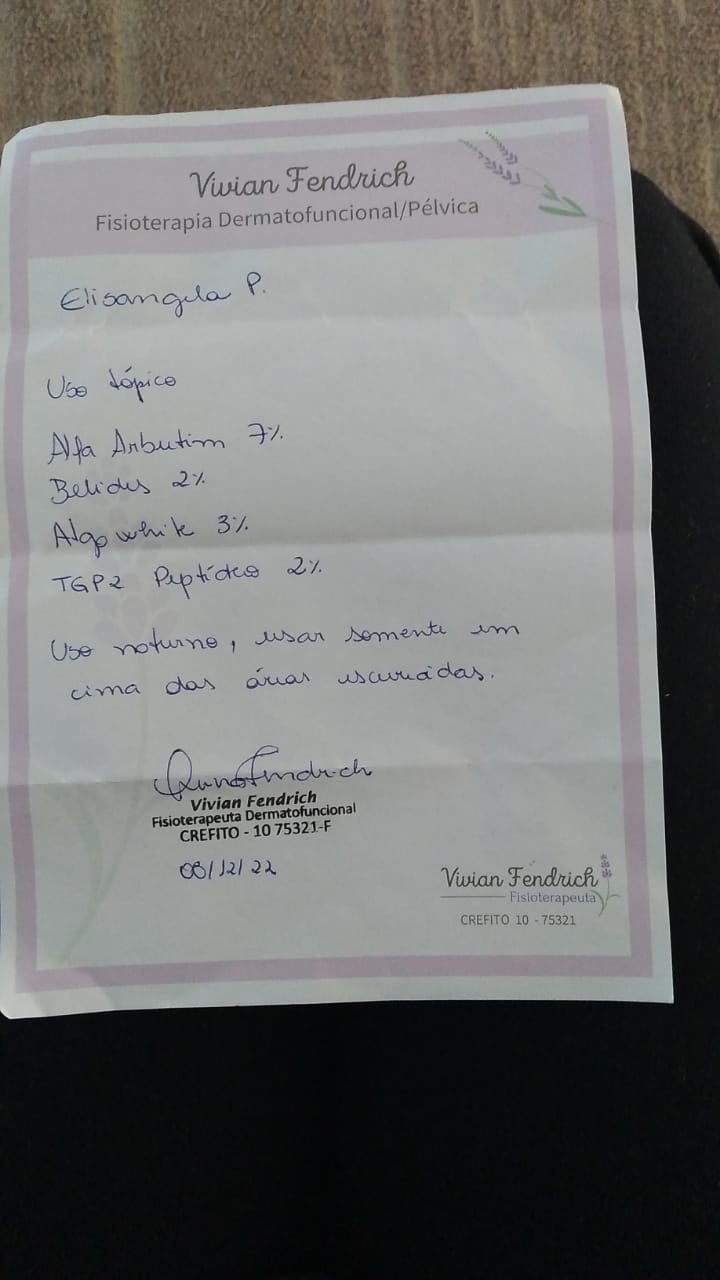 Vivian Fendrich
Fisioterapia Dermatofuncional/Pélvica
Elisangela P.
Uso tópico
Alfa Arbutim 7%
Belides 2%
Algowhite 3%
TGP2 Peptídeo 2%
Uso noturno, usar somente em
cima das áreas escurecidas.
Vivian Fendrich
Fisioterapeuta Dermatofuncional
CREFITO - 10 75321-F
08/12/22
Vivian Fendrich
Fisioterapeuta
CREFITO 10 - 75321